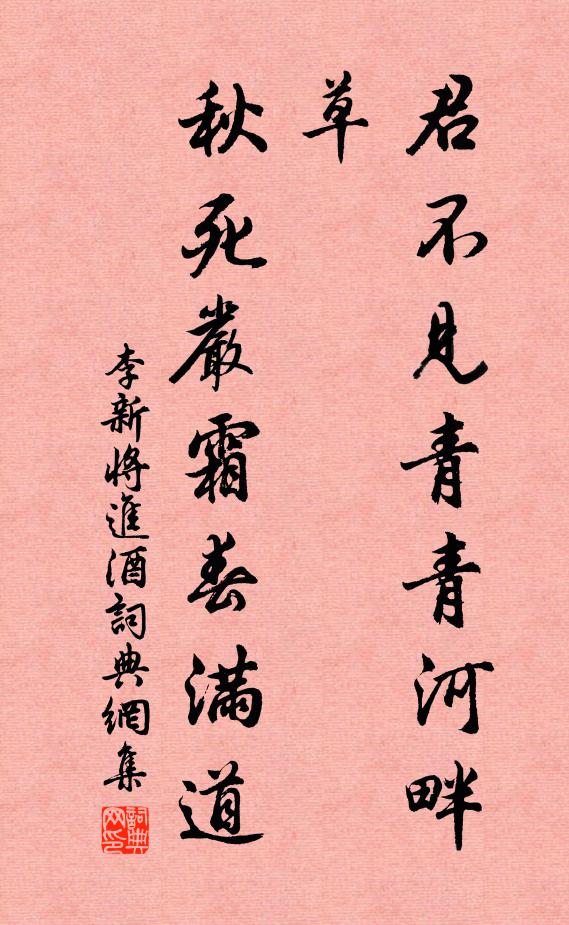 君不見青青河畔
草
秋死嚴霜春滿道
李新將進酒詞典網集
詞典
网印